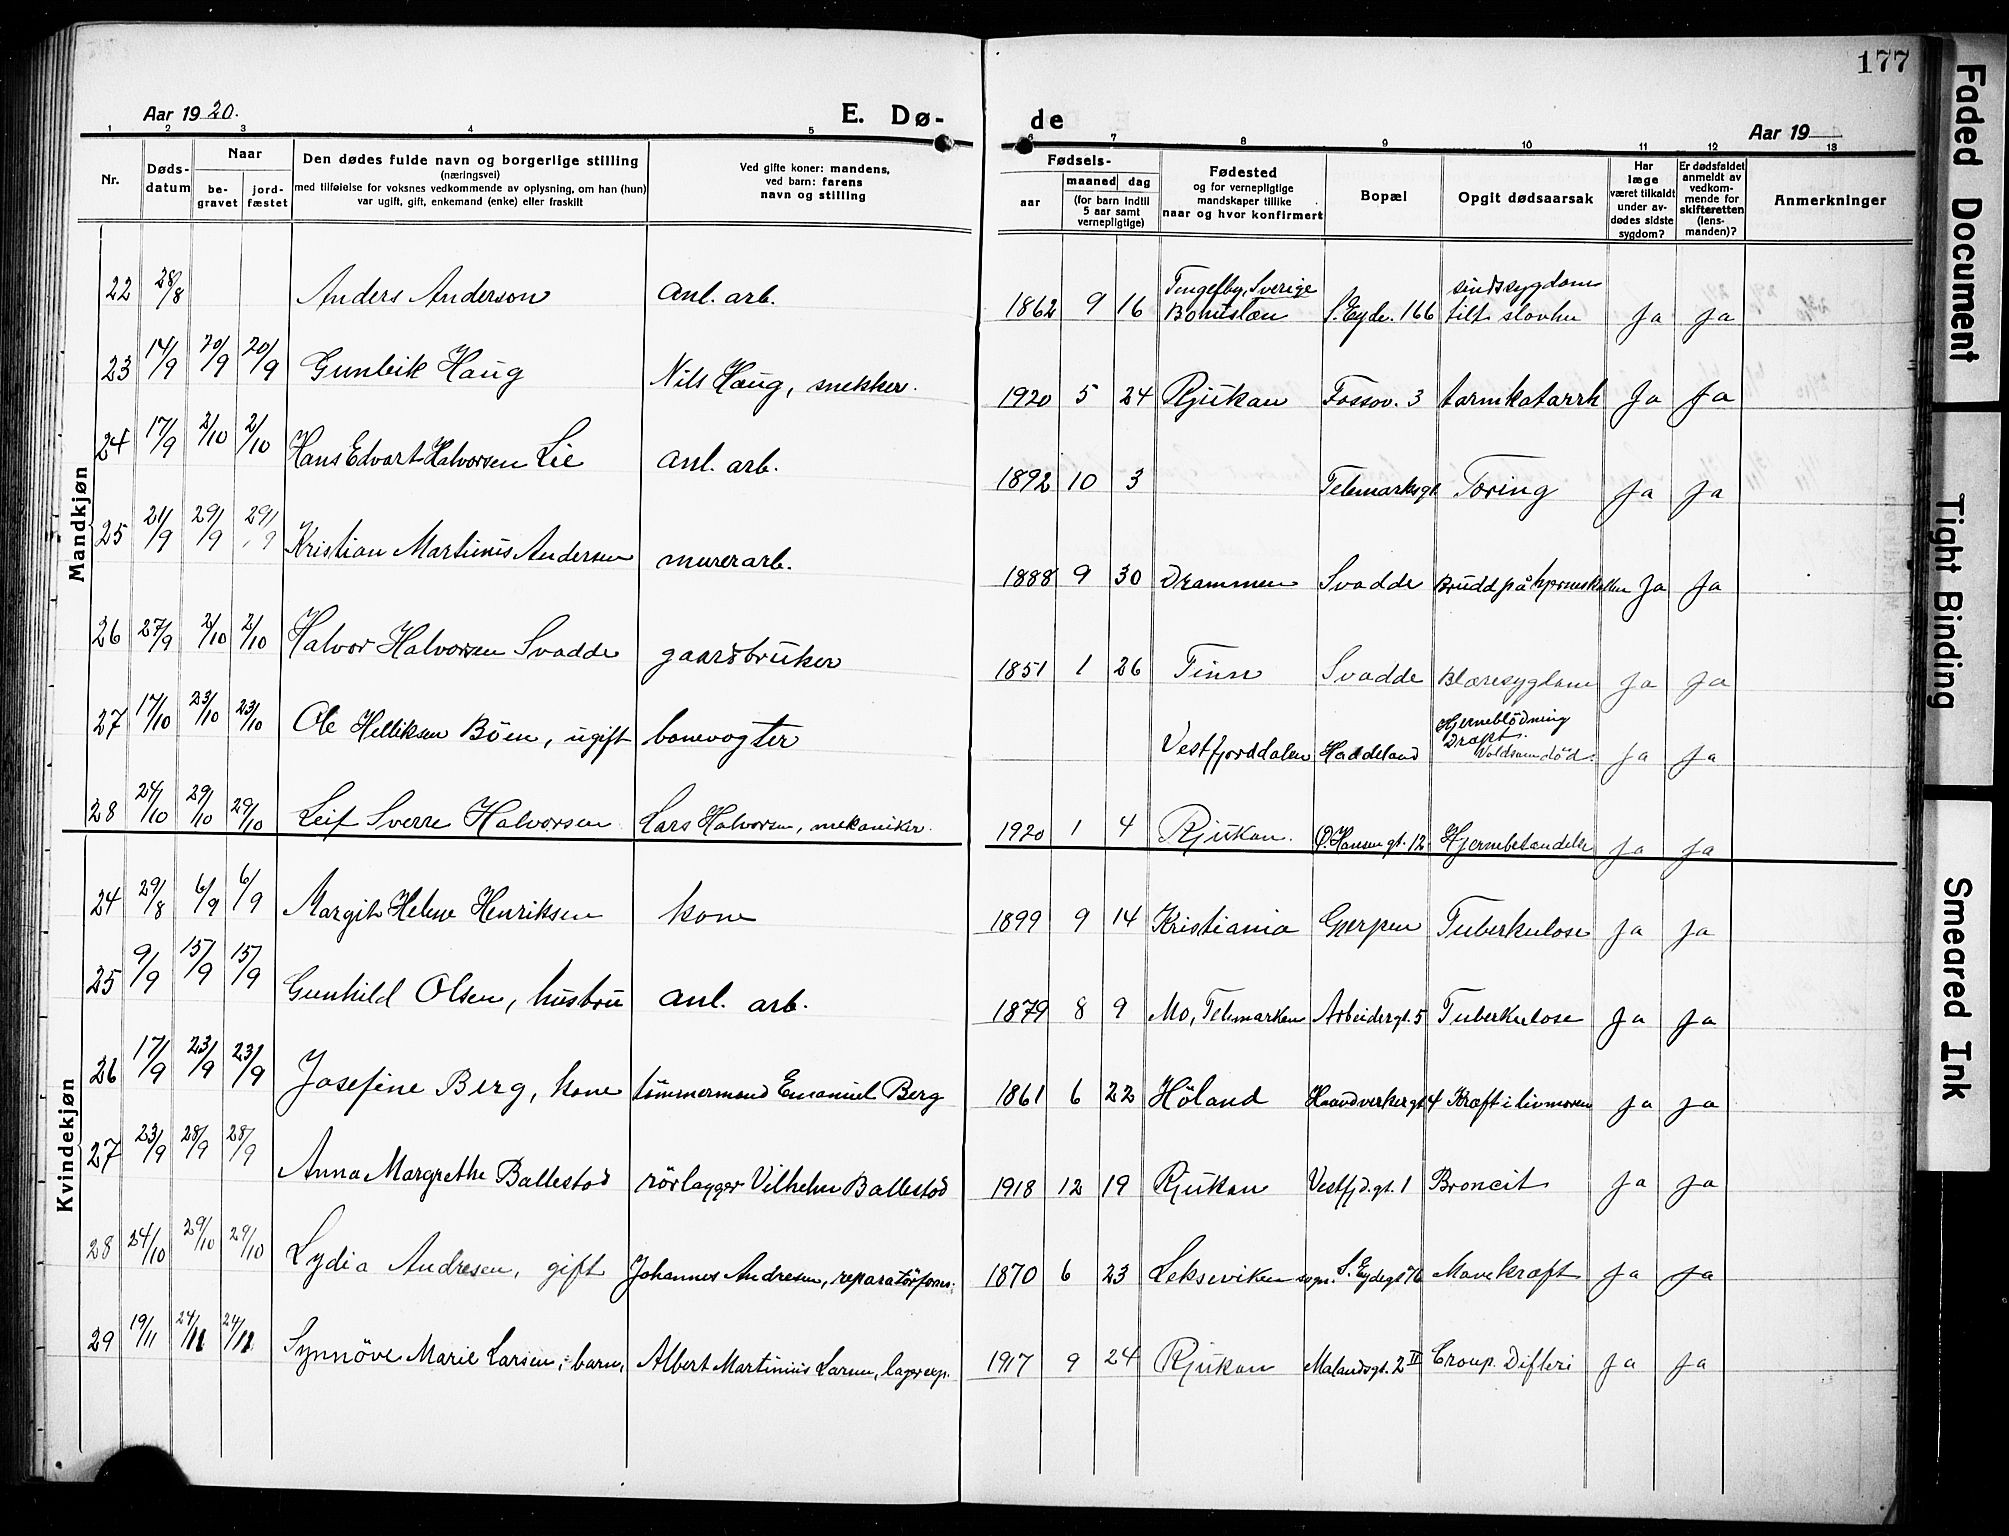 177
Aar 1920.
E. Dø-
de
Aar 19
1 2 3 4 5 6 7 8 9 10 11 12 13
Nr.
Døds-
datum
Naar
be-
gravet
jord-
fæstet
Den dødes fulde navn og borgerlige stilling
(næringsvei)
med tilføielse for voksnes vedkommende av oplysning, om han (hun)
var ugift, gift, enkemand (enke) eller fraskilt
Ved gifte koner: mandens,
ved barn: farens
navn og stilling
Fødsels-
aar
maaned dag
(for barn indtil
5 aar samt
vernepligtige)
Fødested
og for vernepligtige
mandskaper tillike
naar og hvor konfirmert
Bopæl
Opgit dødsaarsak
Har
læge
været tilkaldt
under av-
dødes sidste
sygdom?
Er dødsfaldet
anmeldt av
vedkom-
mende for
skifteretten
(lens-
manden)?
Anmerkninger
Mandkjøn
22 28/8 Anders Anderson anl. arb. 1862 9 16 Sverige Bohuslæn S. Eyde. 166 sindssygdom Ja Ja
23 14/9 20/9 20/9 Gunleik Haug Nils Haug, snekker. 1920 5 24 Rjukan Fossov. 3 tarmkatarrh Ja Ja
24 17/9 2/10 2/10 Hans Edvart Halvorsen Lie anl. arb. 1892 10 3 Telemarksgt. Toring Ja Ja
25 21/9 29/9 29/9 Kristian Martinius Andersen murerarb. 1888 9 30 Drammen Svadde Brudd på hjerneskallen Ja Ja
26 27/9 2/10 2/10 Halvor Halvorsen Svadde gaardbruker 1851 1 26 Tinn Svadde Blæresygdom Ja Ja
27 17/10 23/10 23/10 Ole Helliksen Böen, ugift banevogter Vestfjorddalen Haddeland Hjerneblödning Dræpt. Voldsom död. Ja Ja
28 24/10 29/10 29/10 Leif Sverre Halvorsen Lars Halvorsen, mekaniker. 1920 1 4 Rjukan. O Hansen gt. 12 Hjernebetændelse Ja Ja
Kvindekjøn
24 29/8 6/9 6/9 Margit Helene Henriksen kone 1899 9 14 Kristiania Gjerpen Tuberkulose Ja Ja
25 9/9 15/9 15/9 Gunhild Olsen, hustru anl. arb. 1879 8 9 Mo, Telemarken Arbeidergt. 5 Tuberkulose Ja Ja
26 17/9 23/9 23/9 Josefine Berg, kone tömmermand Emanuel Berg 1861 6 22 Höland Haandverkergt 4 Kræft i livmoren Ja Ja
27 23/9 28/9 28/9 Anna Margrethe Ballestad rörlægger Vilhelm Ballestad 1918 12 19 Rjukan Vestfjd.gt. 1 Broncit Ja Ja
28 24/10 29/10 29/10 Lydia Andresen, gift Johannes Andresen, reparatörform. 1870 6 23 Lekseviken sogn. S. Eydegt 76 Mavekræft Ja Ja
29 19/11 24/11 24/11 Synnöve Marie Larsen, barn, Albert Martinius Larsen, lagerexp. 1917 9 24 Rjukan Malandsgt. 2 II Croup. Difteri Ja Ja
Faded Document
Tight Binding
Smeared Ink